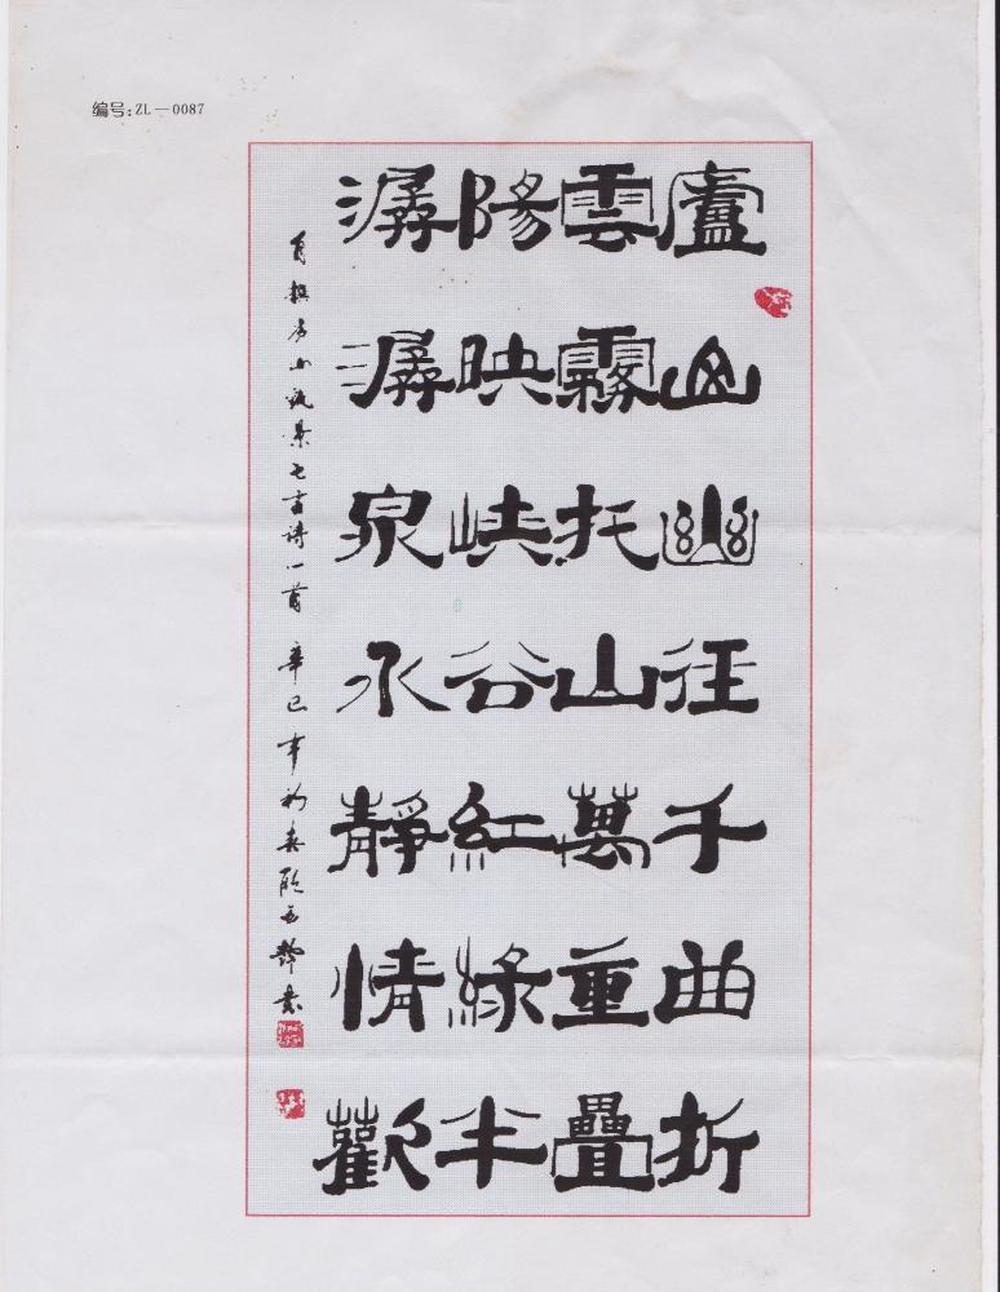 编号:ZL—0087
廬山幽徑千曲折
雲霧托山萬重疊
陽映峡谷紅綠半
潺潺泉水靜情歡
自撰庐山巍景七言诗一首 辛巳年初春 书